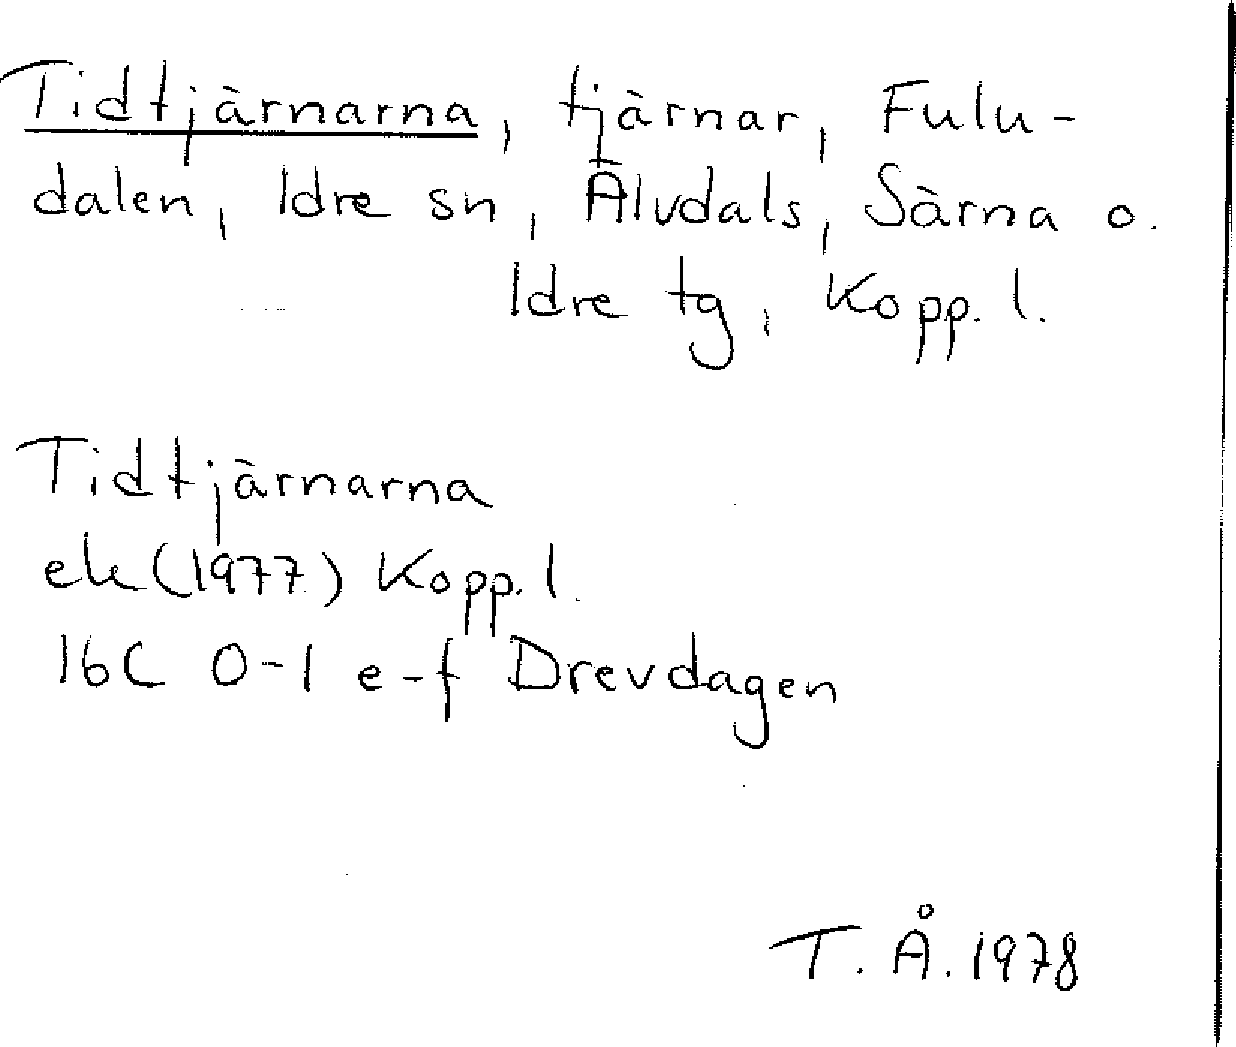 Tidtjärnarna, tjärnar, Fulu-
dalen, Idre sn, Älvdals, Särna o.
Idre tg, Kopp. l.
Tidtjärnarna
ek (1977) Kopp. l.
16C 0-1 e-f Drevdagen
T. Å. 1978